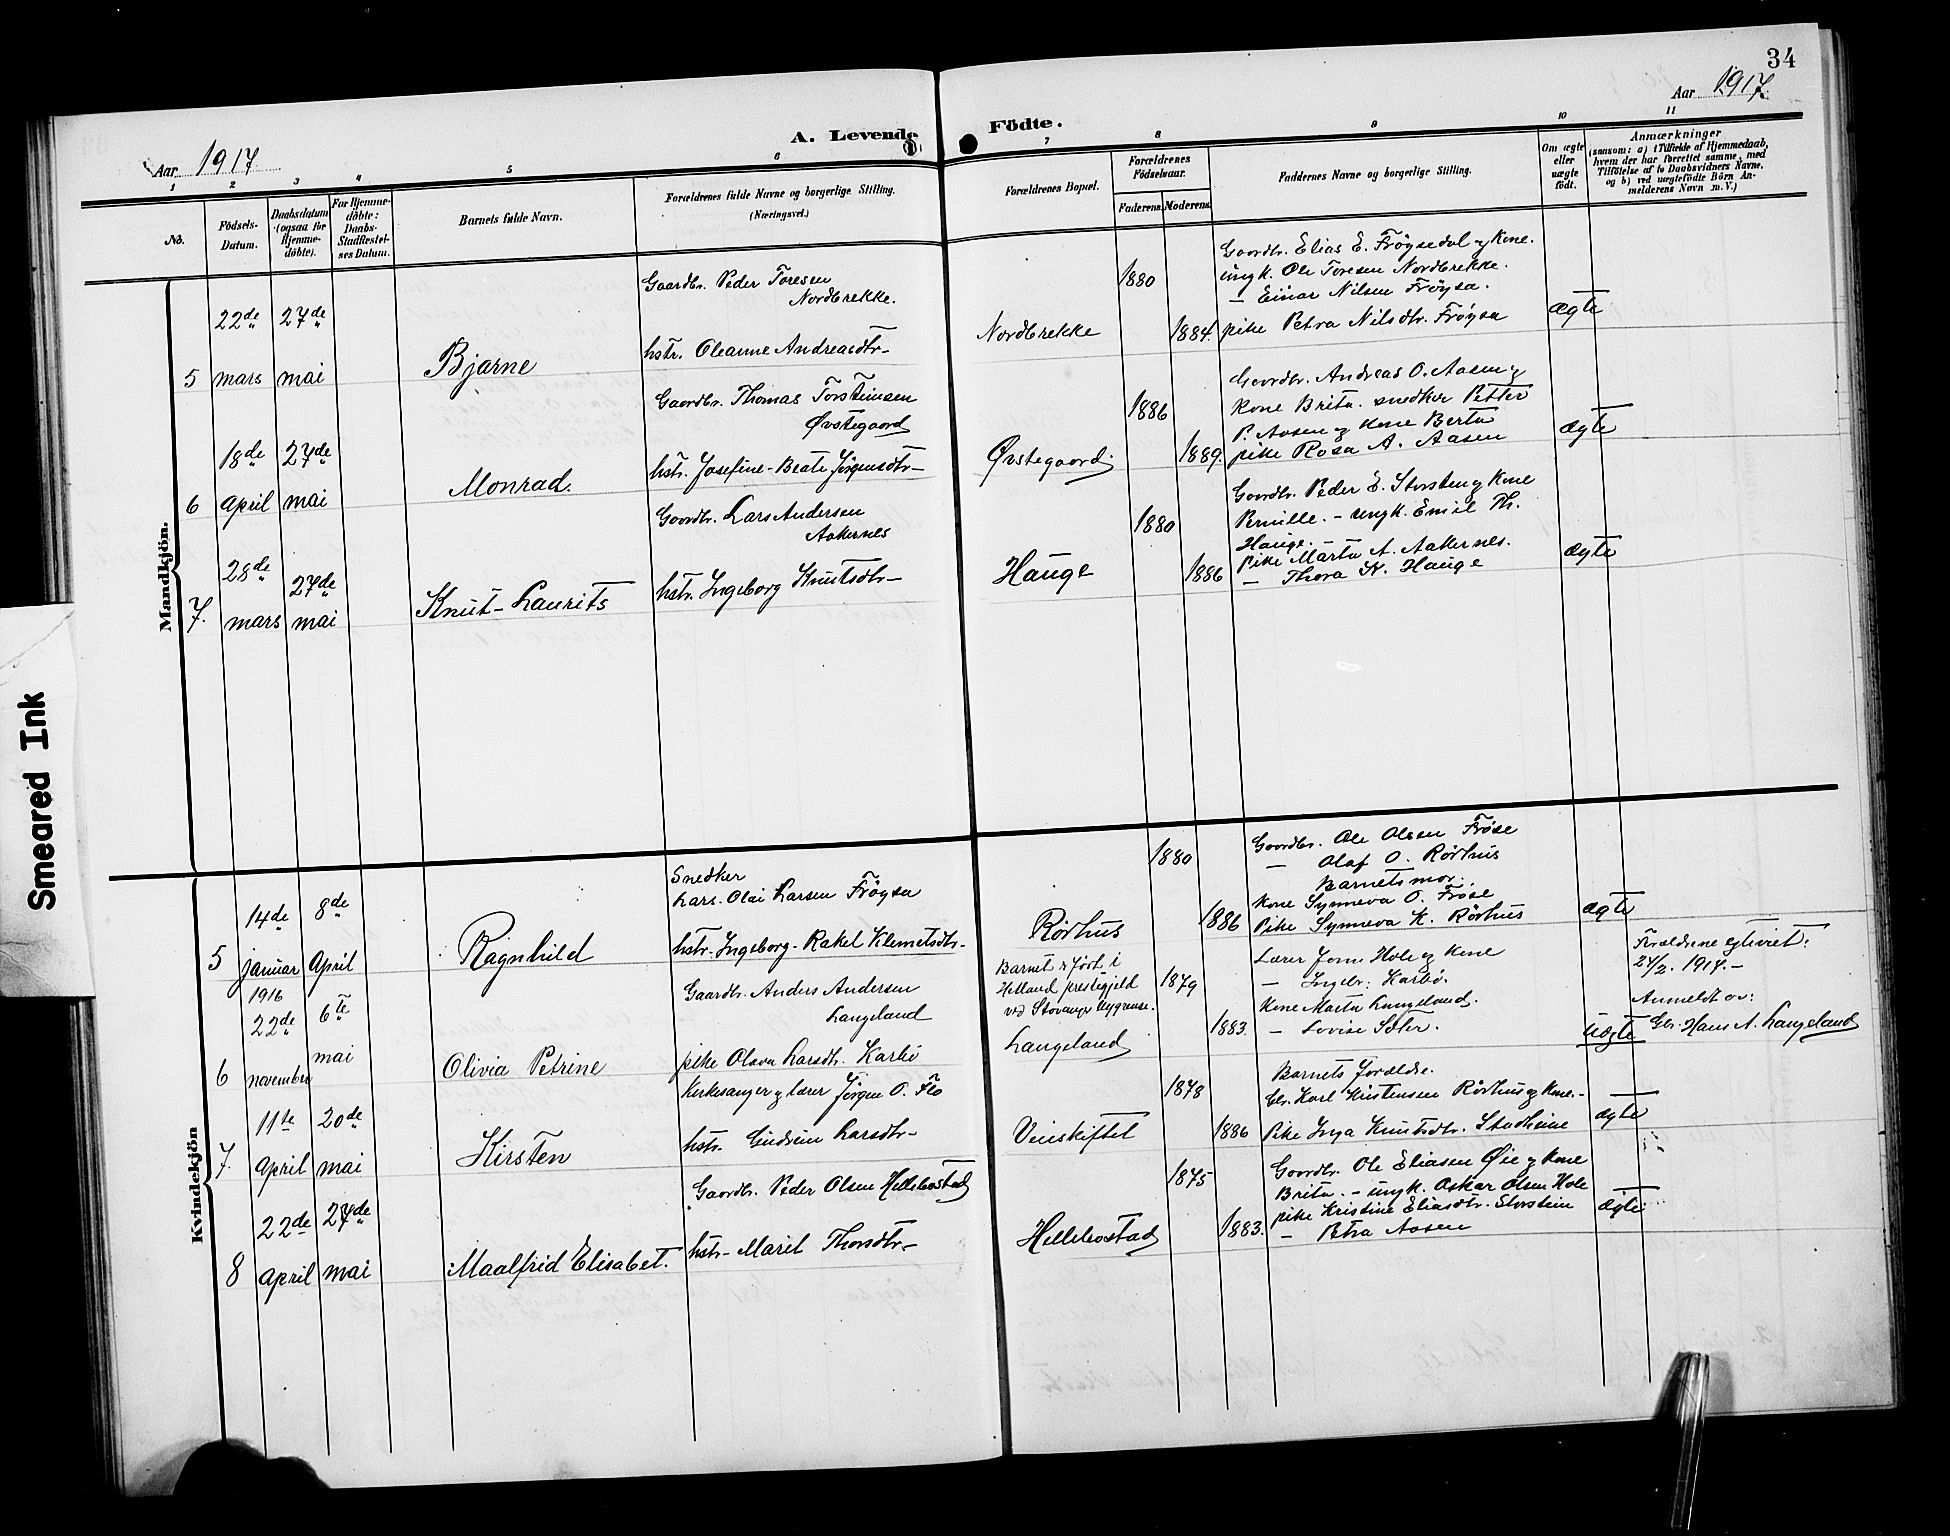 34
Aar 1917.
Aar 1917
A. Levende Födte.
1 2 3 4 5 6 7 8 9 10 11
No.
Födsels-
Datum.
Daabsdatum
(ogsaa for
Hjemme-
döbte).
For Hjemme-
döbte:
Daabs-
Stadfæstel-
ses Datum.
Barnets fulde Navn.
Forældrenes fulde Navne og borgerlige Stilling.
(Næringsvei.)
Forældrenes Bopæl.
Forældrenes
Födselsaar.
Faderens. Moderens.
Faddernes Navne og borgerlige Stilling.
Om ægte
eller
uægte
födt.
Anmærkninger
(saasom: a) i Tilfælde af Hjemmedaab,
hvem der har forrettet samme, med
Tilföielse af to Daabsvidners Navne.
og b) ved uægtefödte Börn An-
melderens Navn m.V.)
Mandkjön.
5
22de
mars
27de
mai
Bjarne
Gaardbr. Peder Toresen
Nordbrekke.
hstr. Oleanne Andreasdtr-
Nordbrekke
1880
1884.
Gaardbr. Elias E. Fröysedal og kone.
ungk. Ole Toresen Nordbrekke.
— Einar Nilsen Fröysa.
pike Petra Nilsdtr. Fröysa
ægte
6
18de
April
27de
mai
Monrad.
Gaardbr. Thomas Torsteinsen
Øvstegaard
hstr. Josefine-Beate Jörgensdtr-
Øvstegaard.
1886
1889.
Gaardbr. Andreas O. Aasen og
kone Brita. snedker Petter
P. Aasen og kone Berta
pike Rosa A. Aasen
ægte
7.
28de
mars
27de
mai
Knut-Laurits
Gaardbr. Lars Andersen
Aakernes
hstr. Ingeborg Knutsdtr-
Hauge
1880
1886
Gaardbr. Peder E. Storsten og kone
Pernille. - ungk. Emil Th.
Hauge. —
Pike Marta A. Aakernes.
— Thora K. Hauge
ægte
Smeared Ink
Kvindekjön
5
14de
januar
8de
April
Ragnhild
Snedker
Lars-Olai Larsen Fröysa
hstr. Ingeborg-Rakel Klemetsdtr-
Rörhus
1880
1886
Gaardbr. Ole Olsen Fröse
— Olaf O. Rörhus
Barnets mor.
Kone Synneva O. Fröse
Pike Synneva K. Rörhus
ægte
6
1916
22de
november
6te
mai
Olivia Petrine
Gaardbr. Anders Andersen
Langeland
pike Olava Larsdtr. Karbö
Barnet er födt i
Helland prestegjeld
ved Stavanger bygrense.
Langeland
1879
1883.
Lærer Jorn Hole og kone
— Ingebr. Karbö.
Kone Marta Langeland.
— Lovise Sæter.
uægte
Forældrene egteviet.
24/2. 1917.-
Anmeldt av:
Gbr. Hans A. Langeland
7.
11te
April
20de
mai
Kirsten
Kirkesanger og lærer Jörgen O. Flo
hstr. Gudrun Larsdtr-
Veiteskiftet
1878
1886
Barnets forældre.
Gbr. Karl Kristensen Rörhus og kone.-
Pike Inga Knutsdtr. Stadheim
ægte
8
22de
April
27de
mai
Maalfrid Elisabet.
Gaardbr. Peder Olsen Hellebostad
hstr- Marit Thorsdtr-
Hellebostad
1875
1883.
Gaardbr. Ole Eliasen Øie og kone
Brita. - ungk. Oskar Olsen Hole
pike Kristine Eliasdtr. Storstein
— Petra Aasen
ægte